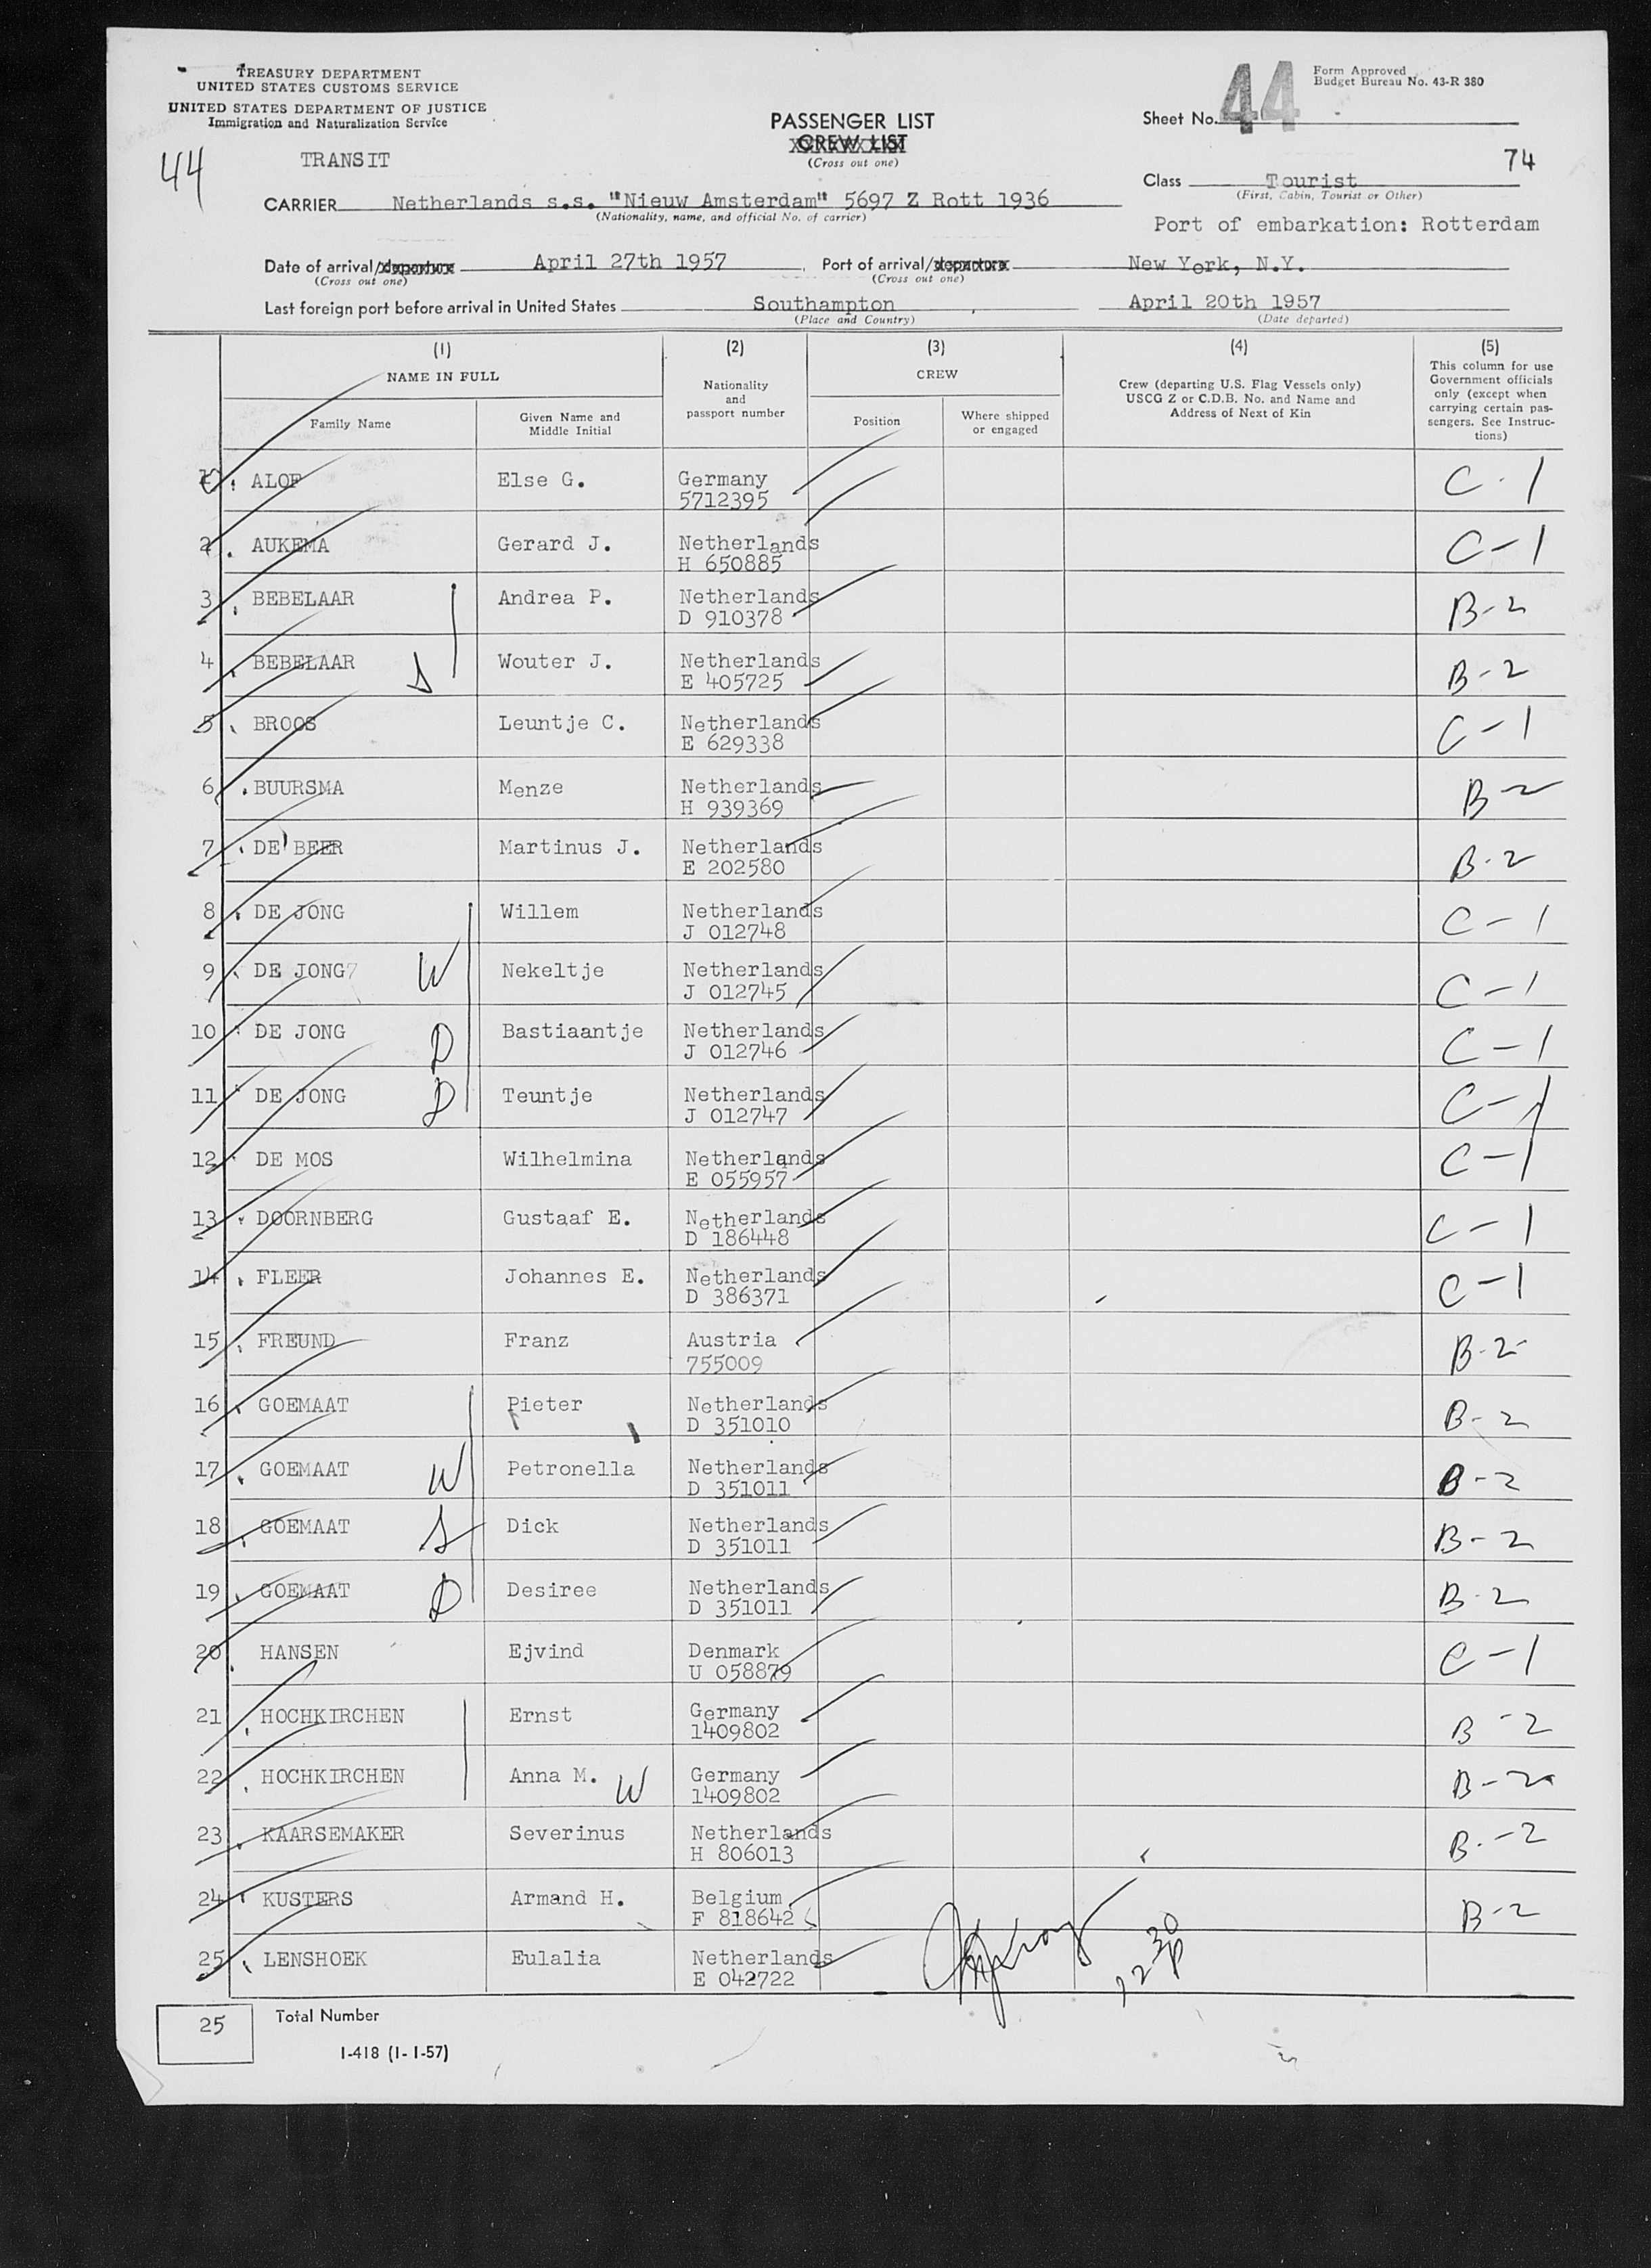 TREASURY DEPARTMENT
UNITED STATES CUSTOMS SERVICE
UNITED STATES DEPARTMENT OF JUSTICE
Immigration and Naturalization Service
Form Approved
Budget Bureau No. 43-R 380
PASSENGER LIST
CREW LIST
(Cross out one)
Sheet No. 44
44
TRANSIT
74
Class Tourist
(First, Cabin, Tourist or Other)
CARRIER Netherlands s.s. "Nieuw Amsterdam" 5697 Z Rott 1936
(Nationality, name, and official No. of carrier)
Port of embarkation: Rotterdam
Date of arrival/departure April 27th 1957, Port of arrival/departure New York, N.Y.
(Cross out one) (Cross out one)
Last foreign port before arrival in United States Southampton, April 20th 1957
(Place and Country) (Date departed)
(1) (2) (3) (4) (5)
NAME IN FULL
Family Name
Given Name and
Middle Initial
Nationality
and
passport number
CREW
Position
Where shipped
or engaged
Crew (departing U.S. Flag Vessels only)
USCG Z or C.D.B. No. and Name and
Address of Next of Kin
This column for use
Government officials
only (except when
carrying certain pas-
sengers. See Instruc-
tions)
ALOF Else G. Germany C-1
5712395
2 AUKEMA Gerard J. Netherlands C-1
H 650885
3 BEBELAAR Andrea P. Netherlands B-2
D 910378
4 BEBELAAR S Wouter J. Netherlands B-2
E 405725
5 BROOS Leuntje C. Netherlands C-1
E 629338
6 BUURSMA Menze Netherlands B-2
H 939369
7 DE BEER Martinus J. Netherlands B-2
E 202580
8 DE JONG Willem Netherlands C-1
J 012748
9 DE JONG W Nekeltje Netherlands C-1
J 012745
10 DE JONG D Bastiaantje Netherlands C-1
J 012746
11 DE JONG D Teuntje Netherlands C-1
J 012747
12 DE MOS Wilhelmina Netherlands C-1
E 055957
13 DOORNBERG Gustaaf E. Netherlands C-1
D 186448
14 FLEER Johannes E. Netherlands C-1
D 386371
15 FREUND Franz Austria B-2
755009
16 GOEMAAT Pieter Netherlands B-2
D 351010
17 GOEMAAT W Petronella Netherlands B-2
D 351011
18 GOEMAAT S Dick Netherlands B-2
D 351011
19 GOEMAAT D Desiree Netherlands B-2
D 351011
20 HANSEN Ejvind Denmark C-1
U 058879
21 HOCHKIRCHEN Ernst Germany B-2
1409802
22 HOCHKIRCHEN Anna M. W Germany B-2
1409802
23 KAARSEMAKER Severinus Netherlands B-2
H 806013
24 KUSTERS Armand H. Belgium B-2
F 818642
25 LENSHOEK Eulalia Netherlands
E 042722
12 30 P
25 Total Number
I-418 (1-1-57)